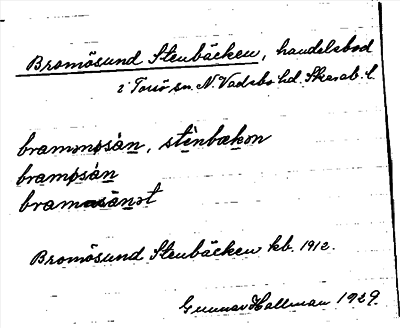 Bromösund Stenbäcken, handelsbod
i Torsö sn. N. Vadsbo hd. Skarab. l.
brammøsàn, stènbækon
brampsàn
bramasànət
Bromösund Stenbäcken kb. 1912.
Gunnar Hallman 1929.